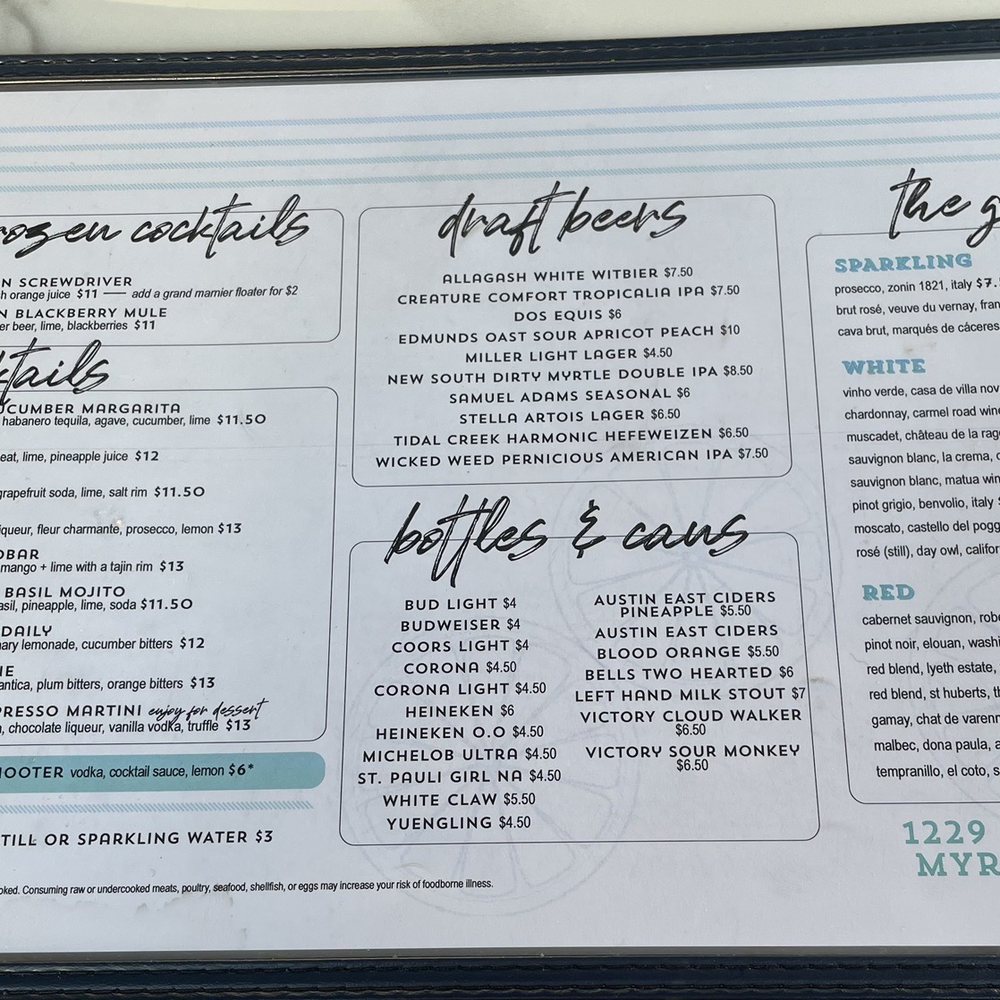 cocktails
SCREWDRIVER
orange juice $11 —— add a grand marnier floater for $2
BLACKBERRY MULE
beer, lime, blackberries $11
MARGARITA
habanero tequila, agave, cucumber, lime $11.50
lime, pineapple juice $12
grapefruit soda, lime, salt rim $11.50
fleur charmante, prosecco, lemon $13
mango + lime with a tajin rim $13
BASIL MOJITO
pineapple, lime, soda $11.50
DAILY
lemonade, cucumber bitters $12
plum bitters, orange bitters $13
MARTINI enjoy for dessert
chocolate liqueur, vanilla vodka, truffle $13
vodka, cocktail sauce, lemon $6*
OR SPARKLING WATER $3
Consuming raw or undercooked meats, poultry, seafood, shellfish, or eggs may increase your risk of foodborne illness.
draft beers
ALLAGASH WHITE WITBIER $7.50
CREATURE COMFORT TROPICALIA IPA $7.50
DOS EQUIS $6
EDMUNDS OAST SOUR APRICOT PEACH $10
MILLER LIGHT LAGER $4.50
NEW SOUTH DIRTY MYRTLE DOUBLE IPA $8.50
SAMUEL ADAMS SEASONAL $6
STELLA ARTOIS LAGER $6.50
TIDAL CREEK HARMONIC HEFEWEIZEN $6.50
WICKED WEED PERNICIOUS AMERICAN IPA $7.50
bottles & cans
BUD LIGHT $4
BUDWEISER $4
COORS LIGHT $4
CORONA $4.50
CORONA LIGHT $4.50
HEINEKEN $6
HEINEKEN 0.0 $4.50
MICHELOB ULTRA $4.50
ST. PAULI GIRL NA $4.50
WHITE CLAW $5.50
YUENGLING $4.50
AUSTIN EAST CIDERS
PINEAPPLE $5.50
AUSTIN EAST CIDERS
BLOOD ORANGE $5.50
BELLS TWO HEARTED $6
LEFT HAND MILK STOUT $7
VICTORY CLOUD WALKER
$6.50
VICTORY SOUR MONKEY
$6.50
the
SPARKLING
prosecco, zonin 1821, italy
brut rosé, veuve du vernay,
cava brut, marqués de cáceres
WHITE
vinho verde, casa de villa
chardonnay, carmel road
muscadet, château de la
sauvignon blanc, la crema,
sauvignon blanc, matua
pinot grigio, benvolio, italy
moscato, castello del
rosé (still), day owl,
RED
cabernet sauvignon,
pinot noir, elouan,
red blend, lyeth estate,
red blend, st huberts,
gamay, chat de
malbec, dona paula,
tempranillo, el coto,
1229